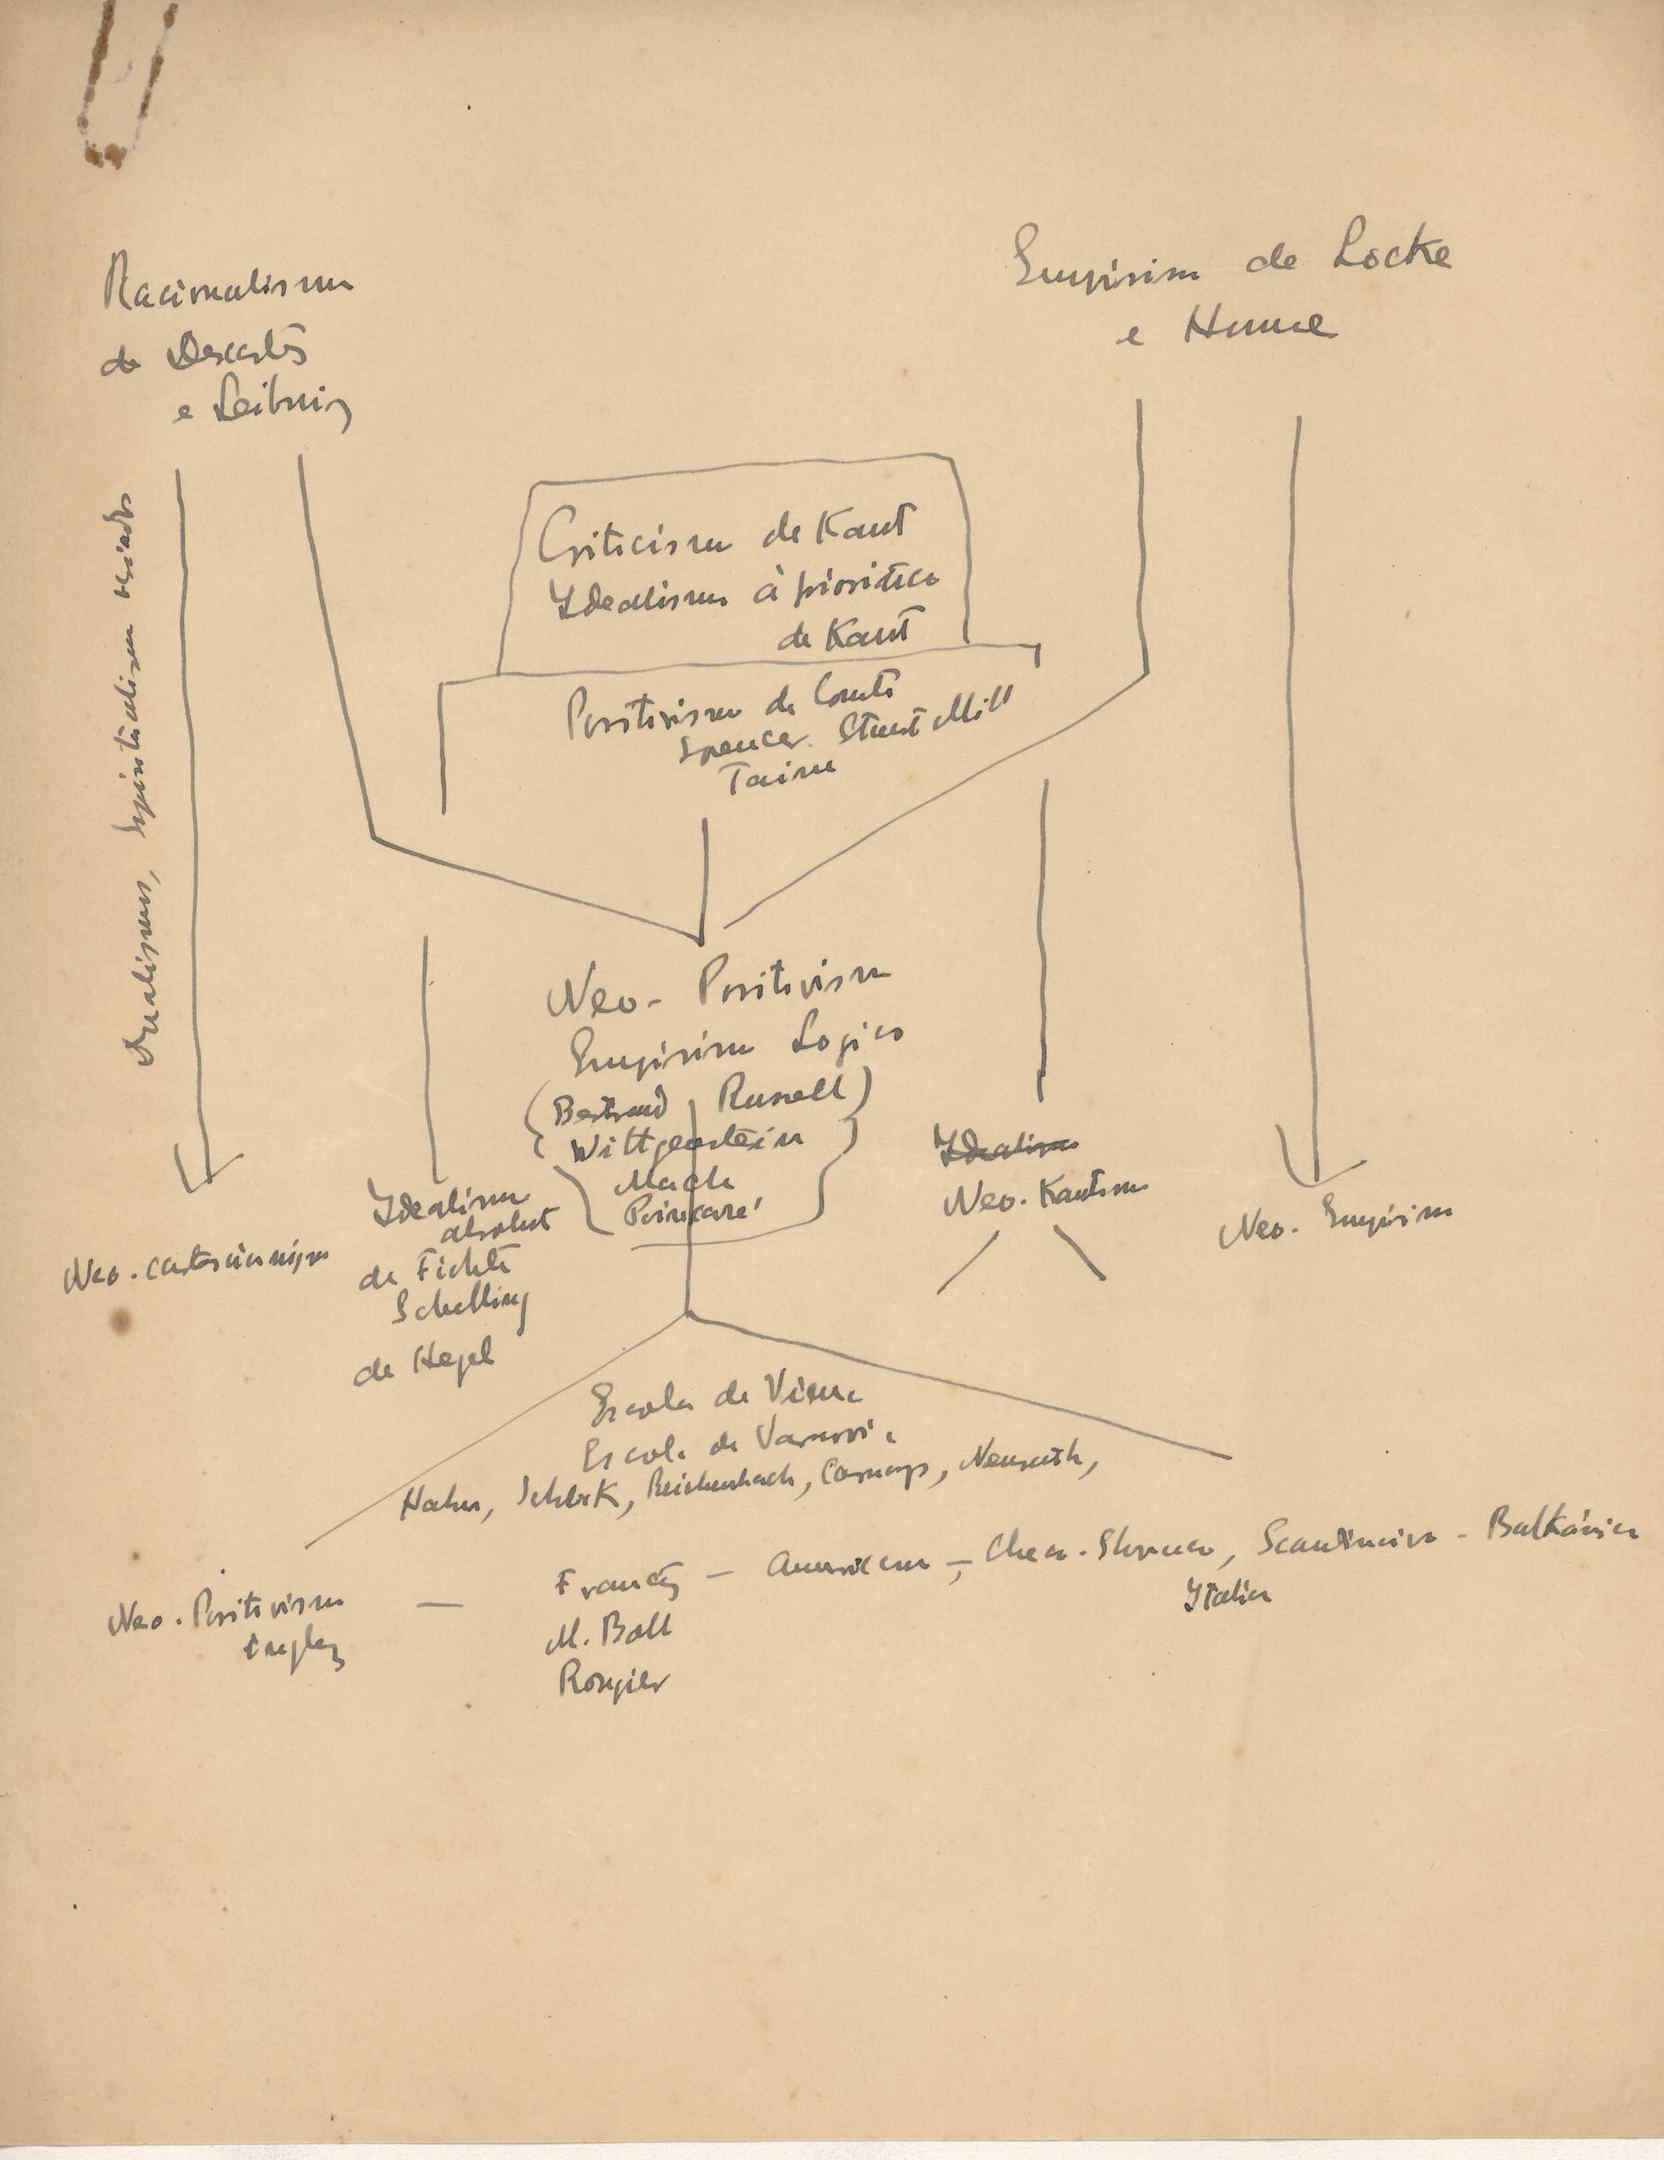 Racionalismo
de Descartes
e Leibniz
Empirismo de Locke
e Hume
Criticismo de Kant
Idealismo à prioritico
de Kant
Positivismo de Comte
Spencer. Stuart Mill
Taine
Dualismo, Espiritualismo
Neo-Positivismo
Empirismo Logico
(Bertrand Russell)
Wittgenstein
Mach
Poincaré
Idealismo
Neo-Kantismo
Neo-Empirismo
Neo-cartesianismo
Idealismo
absoluto
de Fichte
Schelling
de Hegel
Escola de Viena
Escola de Varsovia
Hahn, Schlick, Reichenbach, Carnap, Neurath,
Neo-Positivismo — Francês — Americano —, Checo-Slovaco, Scandinavo - Balkánico
inglez
Italia
M. Boll
Rougier